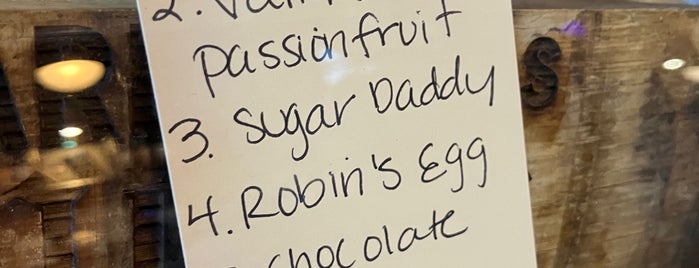 2.
Passionfruit
3. Sugar Daddy
4. Robin's Egg
chocolate
S